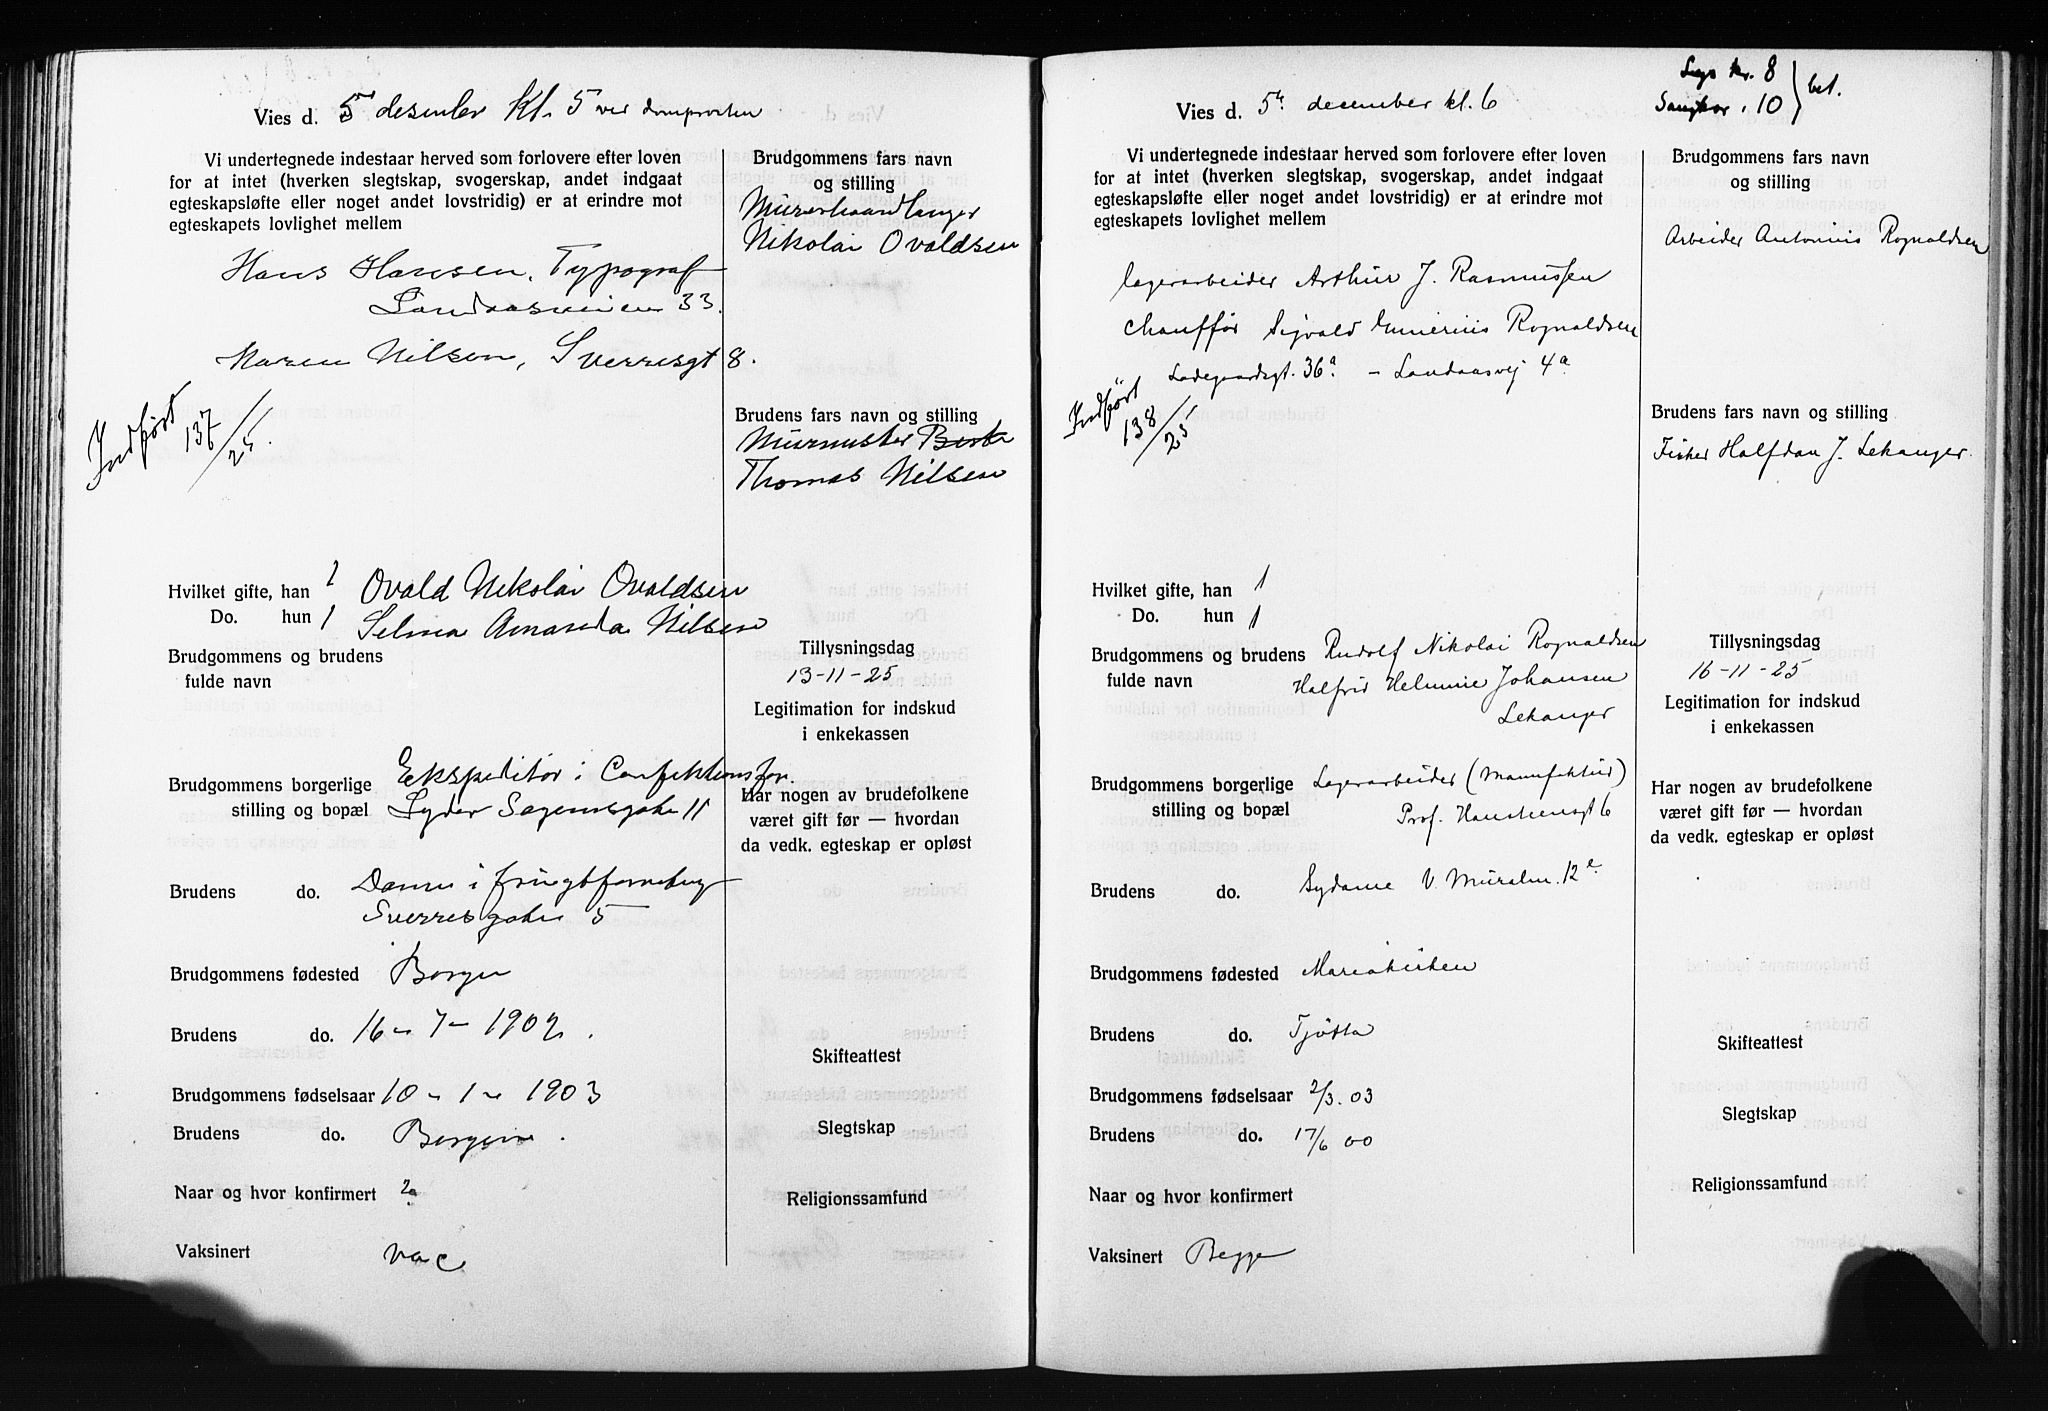 Vies d. 5te desember kl. 5 ved domprosten
Vi undertegnede indestaar herved som forlovere efter loven
for at intet (hverken slegtskap, svogerskap, andet indgaat
egteskapsløfte eller noget andet lovstridig) er at erindre mot
egteskapets lovlighet mellem
Hans Hansen, Typograf
Landaasveien 33.
Maren Nilsen, Sverresgt 8.
Indført 137/25.
Brudgommens fars navn
og stilling
Murerhaandlanger
Nikolai Ovaldsen
Brudens fars navn og stilling
Murmester
Thomas Nilsen
Hvilket gifte, han 1
Do. hun 1
Ovald Nikolai Ovaldsen
Selma Amanda Nilsen
Brudgommens og brudens
fulde navn
Tillysningsdag
13-11-25
Legitimation for indskud
i enkekassen
Brudgommens borgerlige Ekspeditør i Confektionsfor.
stilling og bopæl Lyder Sagensgate 11
Har nogen av brudefolkene
været gift før — hvordan
da vedk. egteskap er opløst
Brudens do. Dame i
Sverresgate 5
Brudgommens fødested Bergen
Brudens do. 16-7-1902.
Skifteattest
Brudgommens fødselsaar 10-1-1903
Brudens do. Bergen.
Slegtskap
Naar og hvor konfirmert
Religionssamfund
Vaksinert vac
Vies d. 5te december kl. 6
kr. 8
Sangkor . 10 } bet.
Vi undertegnede indestaar herved som forlovere efter loven
for at intet (hverken slegtskap, svogerskap, andet indgaat
egteskapsløfte eller noget andet lovstridig) er at erindre mot
egteskapets lovlighet mellem
Lagerarbeider Arthur J. Rasmussen
Chauffør Sigvald Rognaldsen
Ladegaardsgt. 36a - Landaasvej 4a
Indført 138/25
Brudgommens fars navn
og stilling
Arbeider Antonius Rognaldsen
Brudens fars navn og stilling
Fisker Halfdan J. Lekanger.
Hvilket gifte, han 1
Do. hun 1
Brudgommens og brudens Rudolf Nikolai Rognaldsen
fulde navn Halfrid Helmine Johansen
Lekanger
Tillysningsdag
16-11-25
Legitimation for indskud
i enkekassen
Brudgommens borgerlige Lagerarbeider (Manufaktur)
stilling og bopæl Prof. Hansteensgt 6
Har nogen av brudefolkene
været gift før — hvordan
da vedk. egteskap er opløst
Brudens do. Sydame V. Muralm. 12e
Brudgommens fødested Mariakirken
Brudens do. Tjøtta
Skifteattest
Brudgommens fødselsaar 2/3. 03
Brudens do. 17/6 00
Slegtskap
Naar og hvor konfirmert
Religionssamfund
Vaksinert Begge